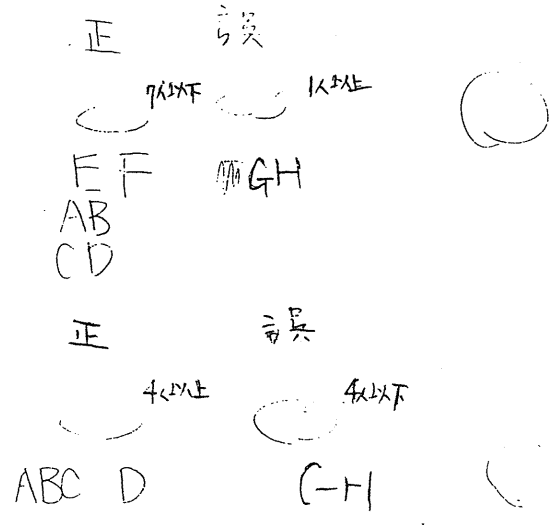 正 誤
7人以下 1人以上
EF GH
AB
CD
正 誤
4人以上 4人以下
ABC D